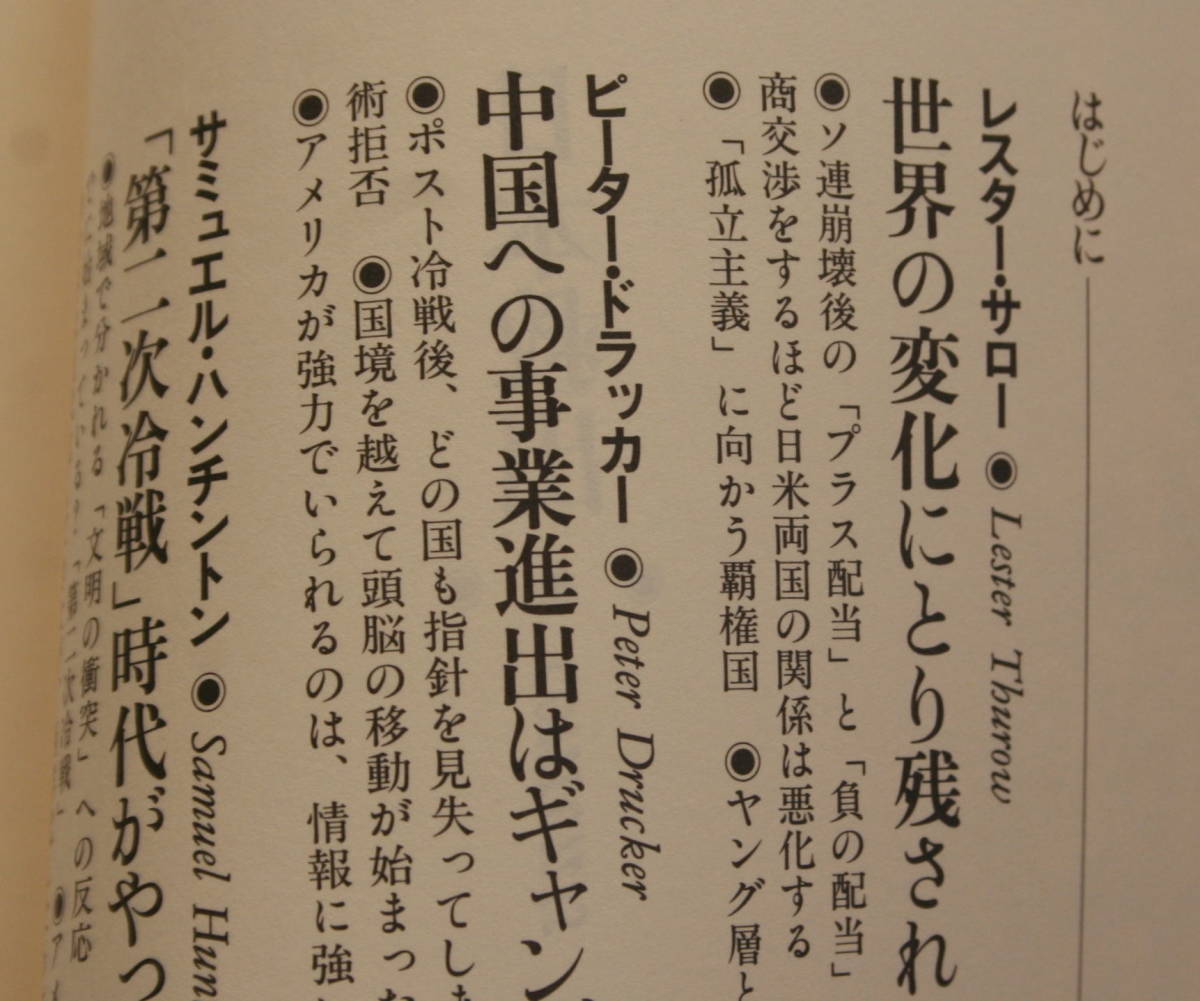 はじめに
レスター・サロー ◉ Lester Thurow
世界の変化にとり残され
◉ソ連崩壊後の「プラス配当」と「負の配当」
商交渉をするほど日米両国の関係は悪化する
◉「孤立主義」に向かう覇権国 ◉ヤング層と
ピーター・ドラッカー ◉ Peter Drucker
中国への事業進出はギャン
◉ポスト冷戦後、どの国も指針を見失ってしま
術拒否 ◉国境を越えて頭脳の移動が始まっ
◉アメリカが強力でいられるのは、情報に強
サミュエル・ハンチントン ◉ Samuel Hun
「第二次冷戦」時代がやっ
◉地域で分かれる「文明の衝突」への反応 ◉アメ